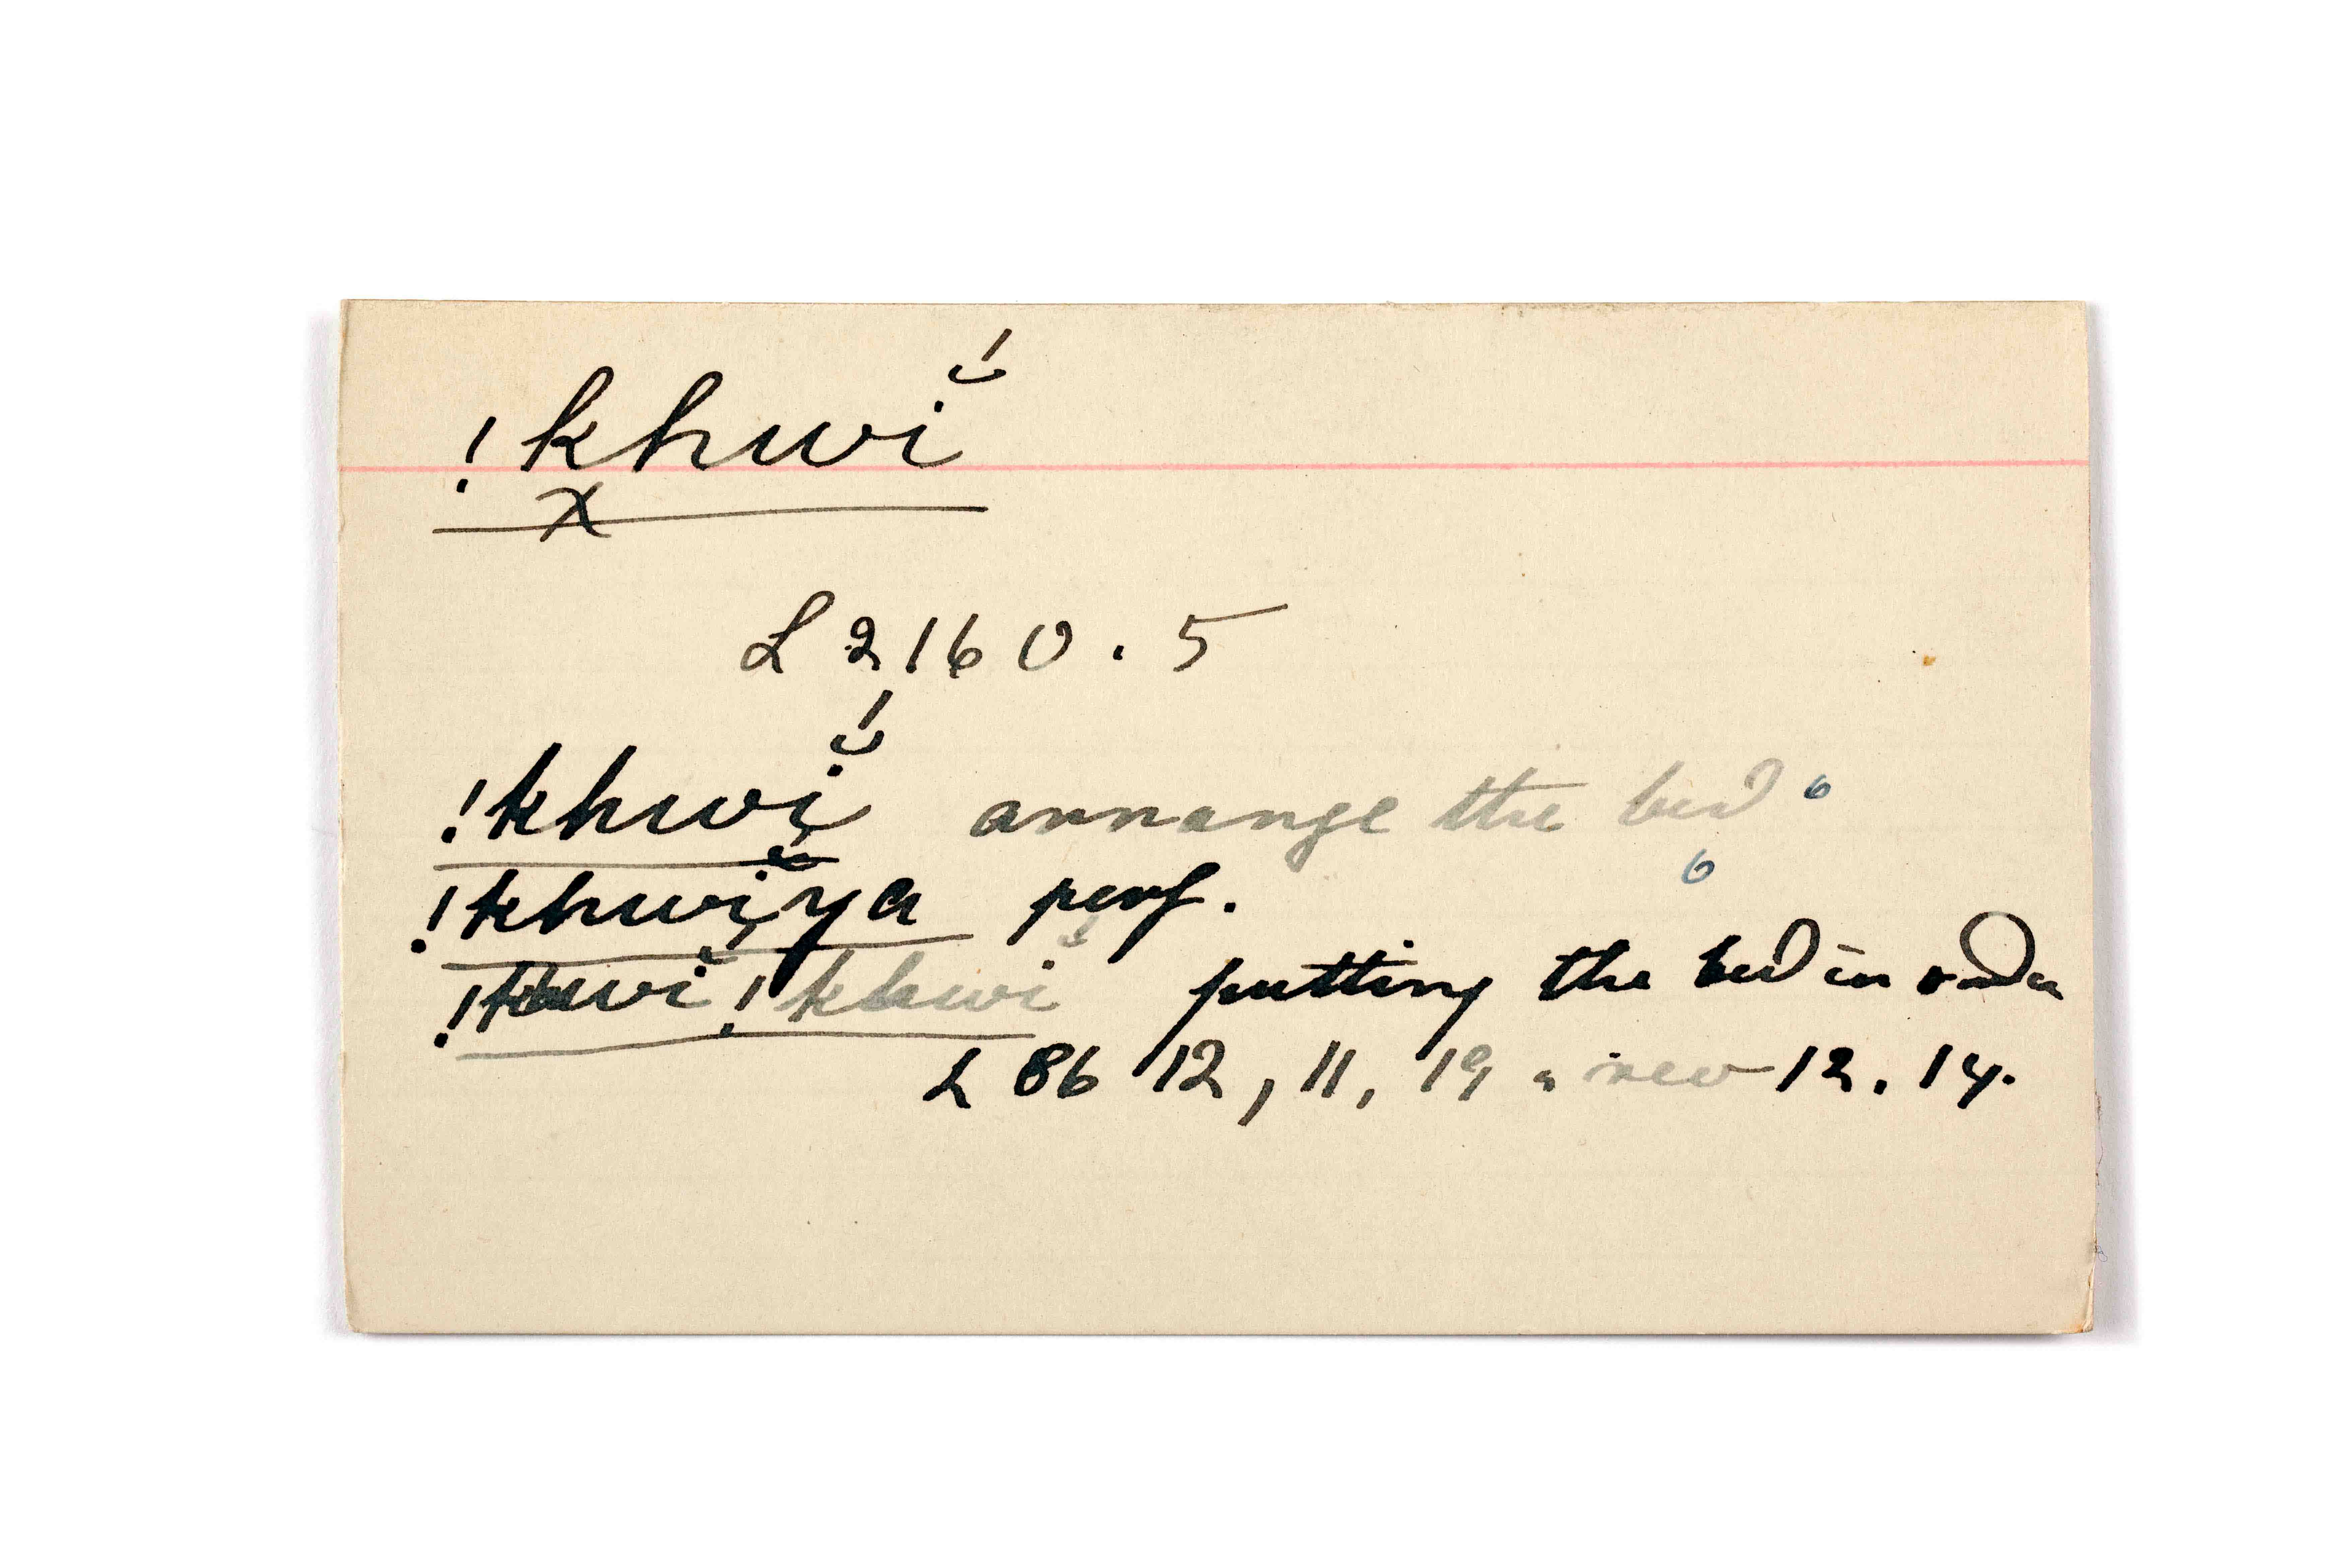 !khwĭ́
x
L 2160.5
!khwĭ́ arrange the bed 6
!khwĭya perf. 6
!khwĭ!khwĭ putting the bed in order
L 86 12, 11, 19, rev 12. 14.